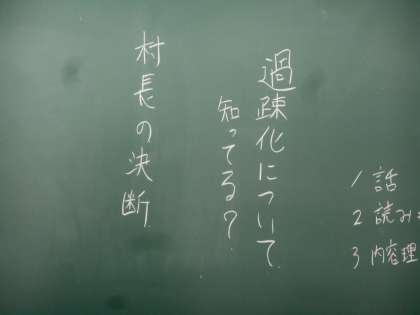 過疎化について
知ってる?
村長の決断
1 話
2 読み
3 内容理